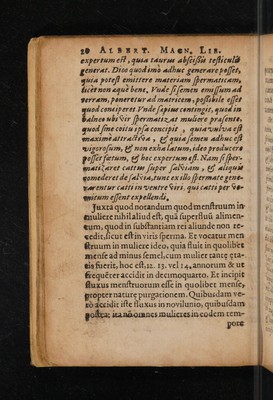 20 ALBERT. MAGN. LIB.
expertum est, quia taurus abscissis testiculis
generat. Dico quod imò adhuc generare posset,
quia potest emittere materiam spermaticam,
licèt non aquè bene, Vnde si semen emissum ad
terram, poneretur ad matricem, possibile esset
quod conciperet Vnde sæpius contingit, quod in
balneo ubi vir spermatizat muliere præsente,
quod sine coitu ipsa concipit, quia vulua est
maximè attractiua, & quia semen adhuc est
vigorosum, & non exhalatum, ideo producere
posset fœtum, & hoc expertum est. Nam si sper-
matizaret cattus super saluiam, & aliquis
comederet de saluia, tunc ex illo spermate gene-
rarentur catti in ventre viri, qui catti per vo-
mitum essent expellendi.
Juxta quod notandum quod menstruum in
muliere nihil aliud est, quã superfluũ alimen-
tum, quod in substantiam rei aliunde non re-
cedit, sicut est in viris sperma. Et vocatur men
struum in muliere ideo, quia fluit in quolibet
mense ad minus semel, cum mulier tantę ęta-
tis fuerit, hoc est, 12. 13. vel 14, annorum & ut
frequẽter accidit in decimoquarto. Et incipit
fluxus menstruorum esse in quolibet mense,
propter naturę purgationem. Quibusdam ve-
rò accidit iste fluxus in nouilunio, quibusdam
postea: ita nõ omnes mulieres in eodem tem-
pore